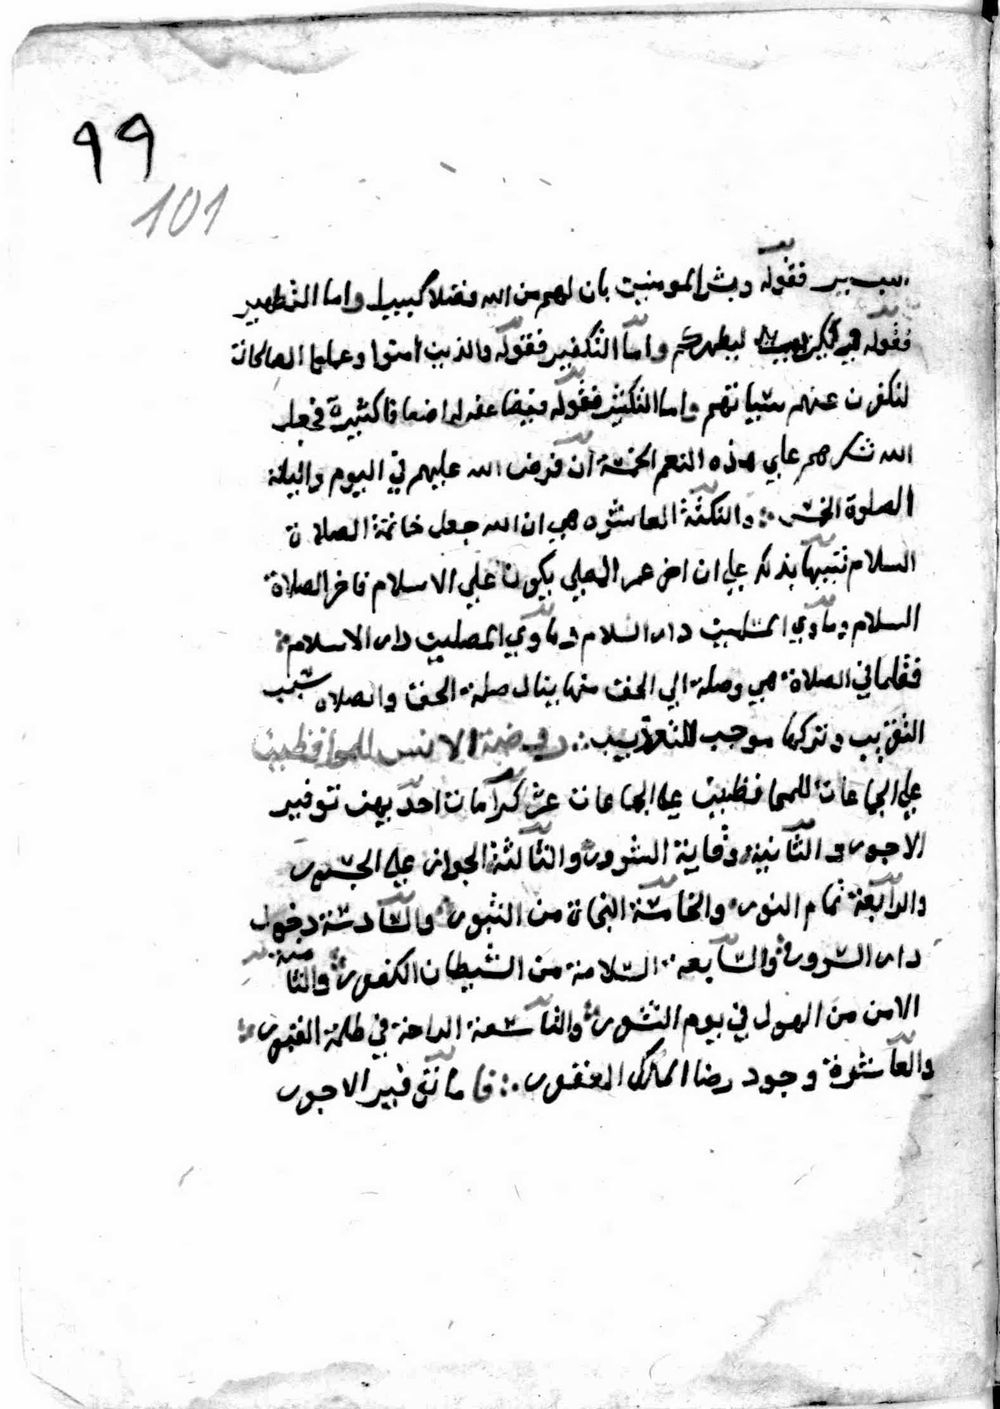 ٩٩
101
فقوله وبشر المومنين بان لهم من الله فضلا كبيرا واما التطهير
فقوله ليطهركم واما التكفير فقوله والذين امنوا وعملوا الصالحات
لنكفرن عنهم سيياتهم واما التكثير فقوله فيضاعفه له اضعافا كثيرة فجعل
الله شكرهم علي هذه النعم الخمسة ان فرض الله عليهم في اليوم والليلة
الصلوة الخمس والنكتة العاشره هي ان الله جعل خاتمة الصلاة
السلام تنبيها بذلك علي ان اخر عمر المصلي يكون علي الاسلام فاخر الصلاة
السلام وماوي المسلمين دار السلام وماوي المصلين دار الاسلام
فقلما في الصلاة هي وصلة الي الحق منها ينال صلة الحق والصلاه سبب
التقريب وتركها موجب للتعذيب روضة الانس للمحافظين
علي الجماعات للمحافظين علي الجماعات عشر كرامات احديهن توفير
الاجور والثانية وقاية الشرور والثالثة الجواز علي الجسور
والرابعة تمام النور والخامسة النجاة من الثبور والسادسة دخول
دار السرور والسابعة السلامة من الشيطان الكفور والثامنة
الامن من الهول في يوم النشور والتاسعة الراحة في ظلمة القبور
والعاشرة وجود رضا المالك الغفور فاما توفير الاجور